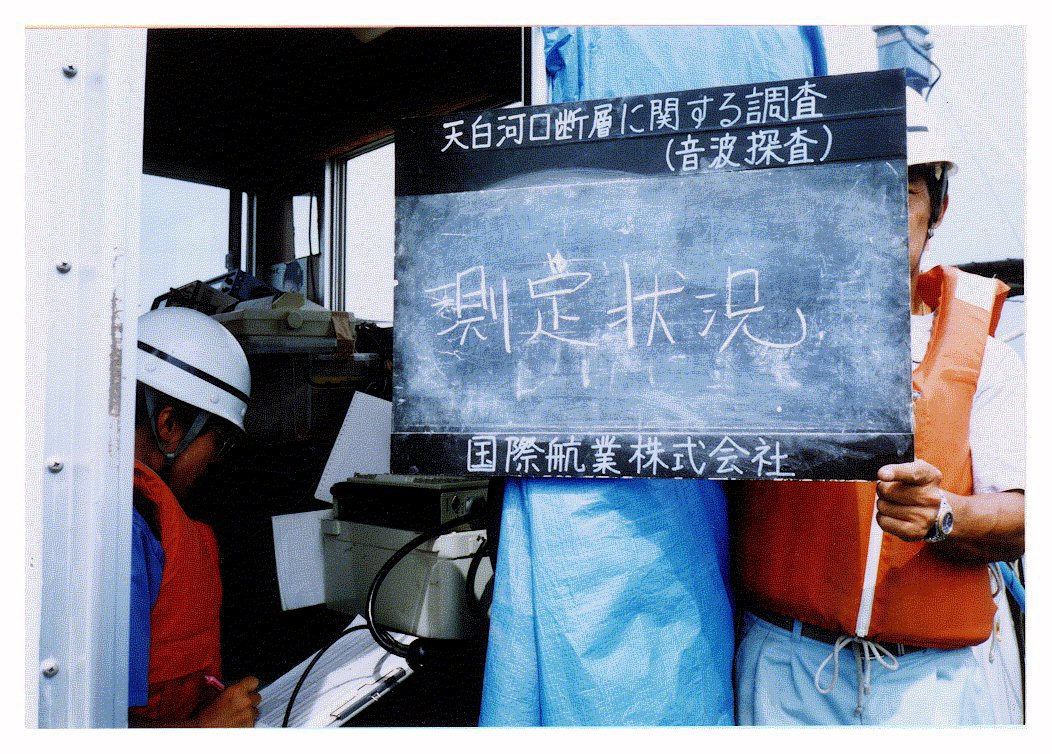 天白河口断層に関する調査
(音波探査)
測定状況
国際航業株式会社